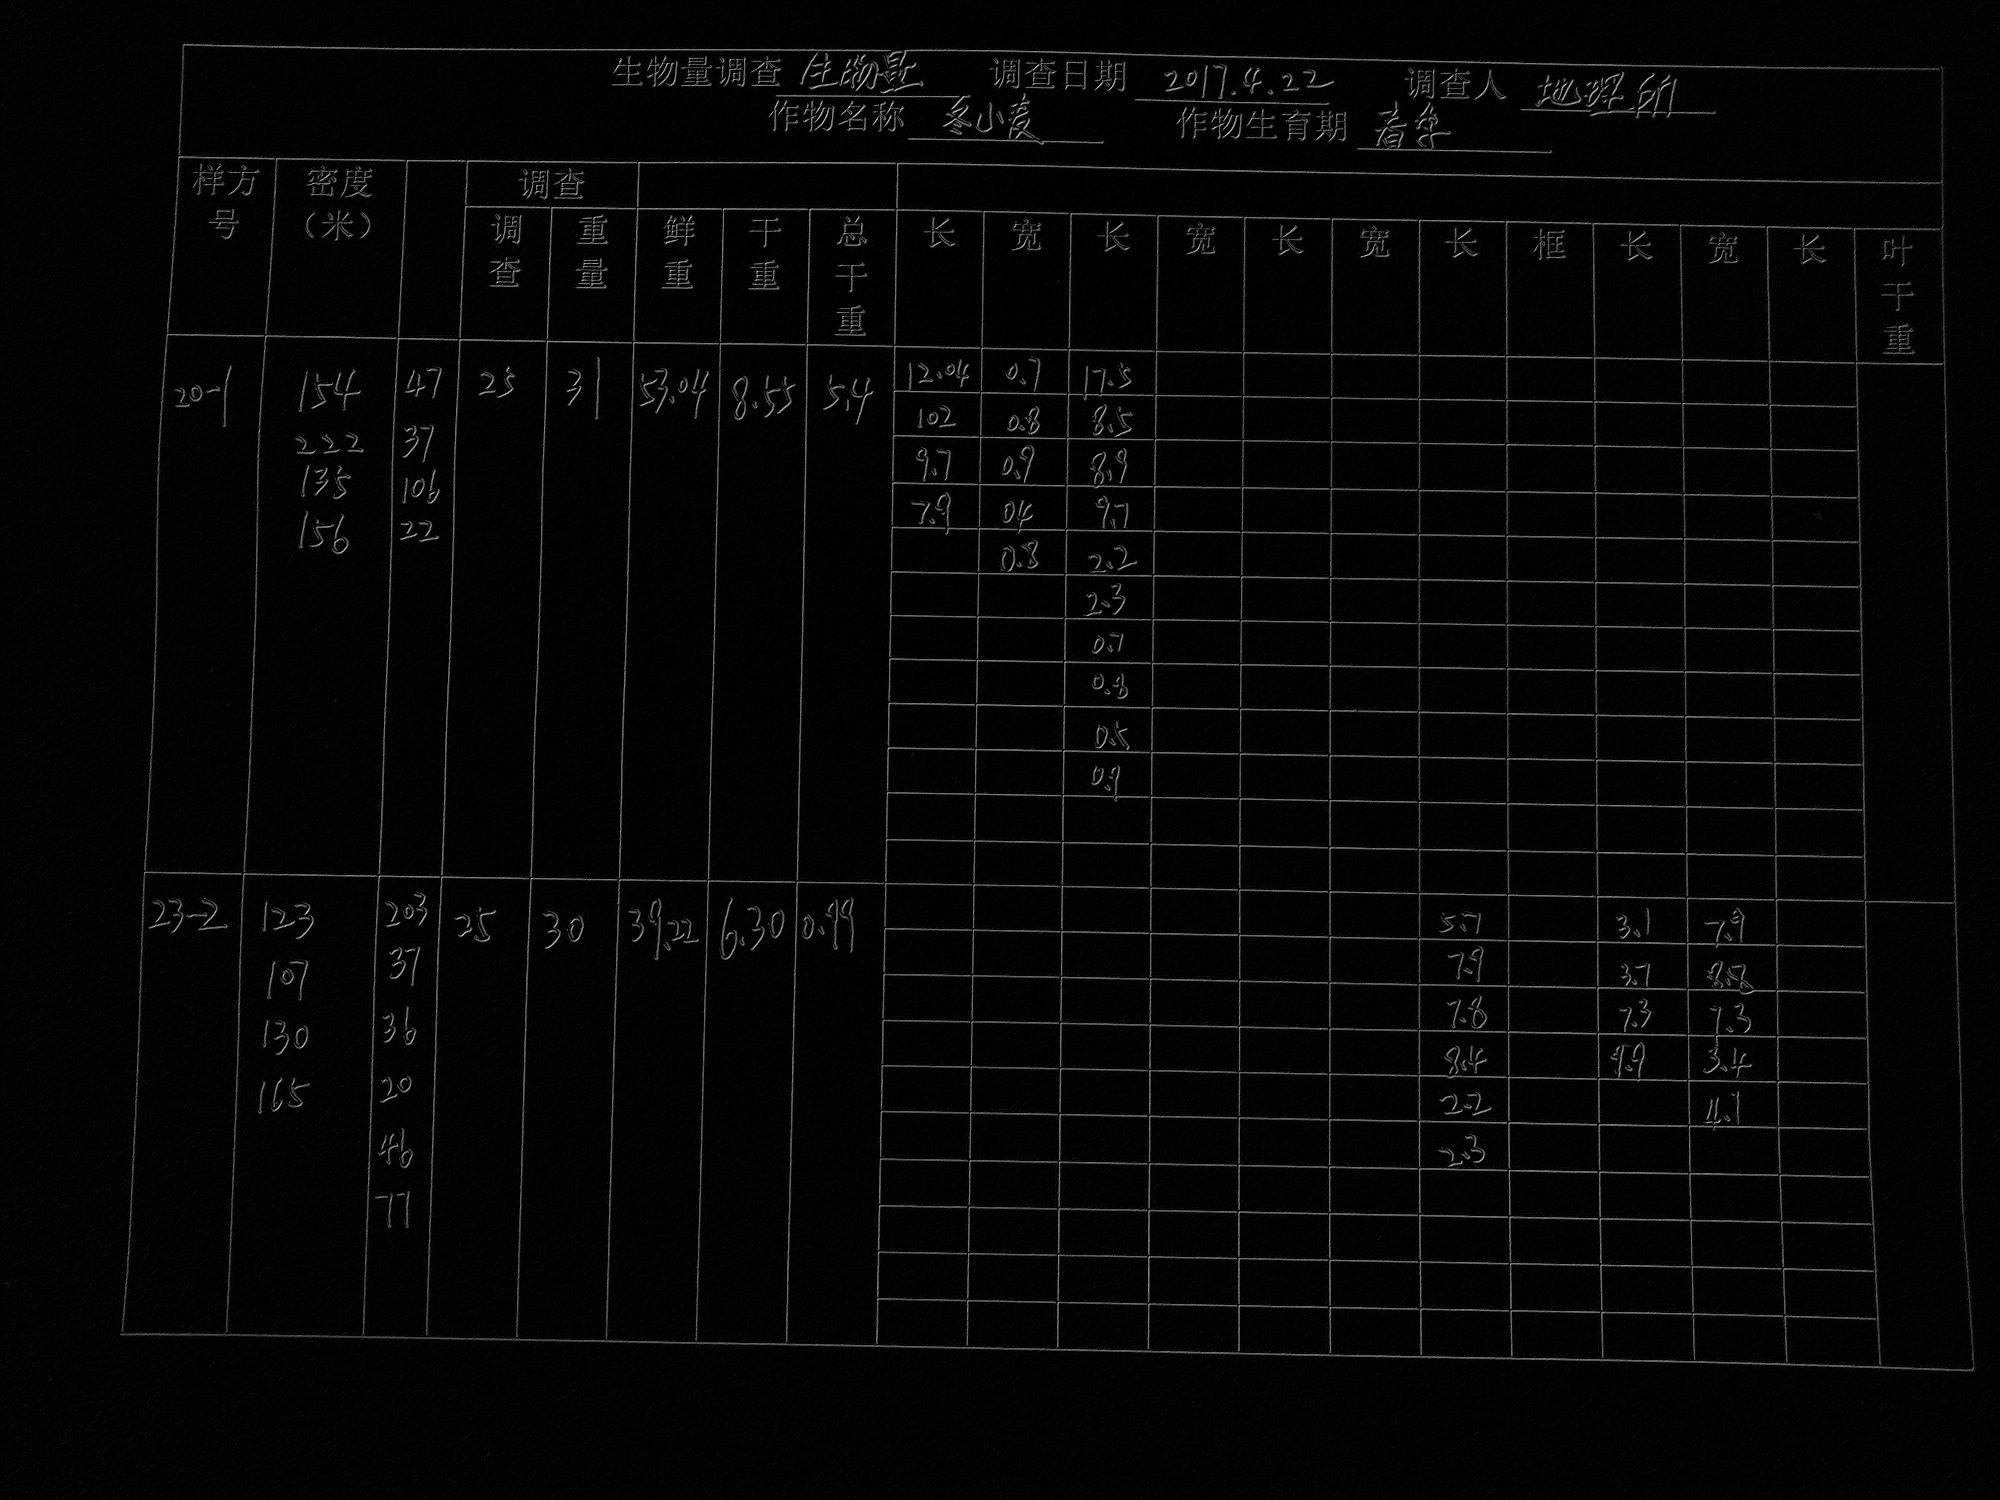 生物量调查 生物量 调查日期 2017.4.22 调查人 地理所
作物名称 冬小麦 作物生育期 春季
样方号 密度（米） 调查
调查 重量 鲜重 干重 总干重 长 宽 长 宽 长 宽 长 框 长 宽 长 叶干重
20-1 154 47 25 31 53.04 8.55 5.4 12.04 0.7 17.5
222 37 102 0.8 8.5
135 106 9.7 0.9 8.9
156 22 7.9 04 9.7
0.8 2.2
2.3
0.7
0.8
0.5
0.9
23-2 123 203 25 30 39.22 6.30 0.99 5.7 3.1 7.9
107 37 7.9 3.7 8.8
130 36 7.8 7.3 7.3
165 20 8.4 9.9 3.4
46 2.2 4.1
77 2.3